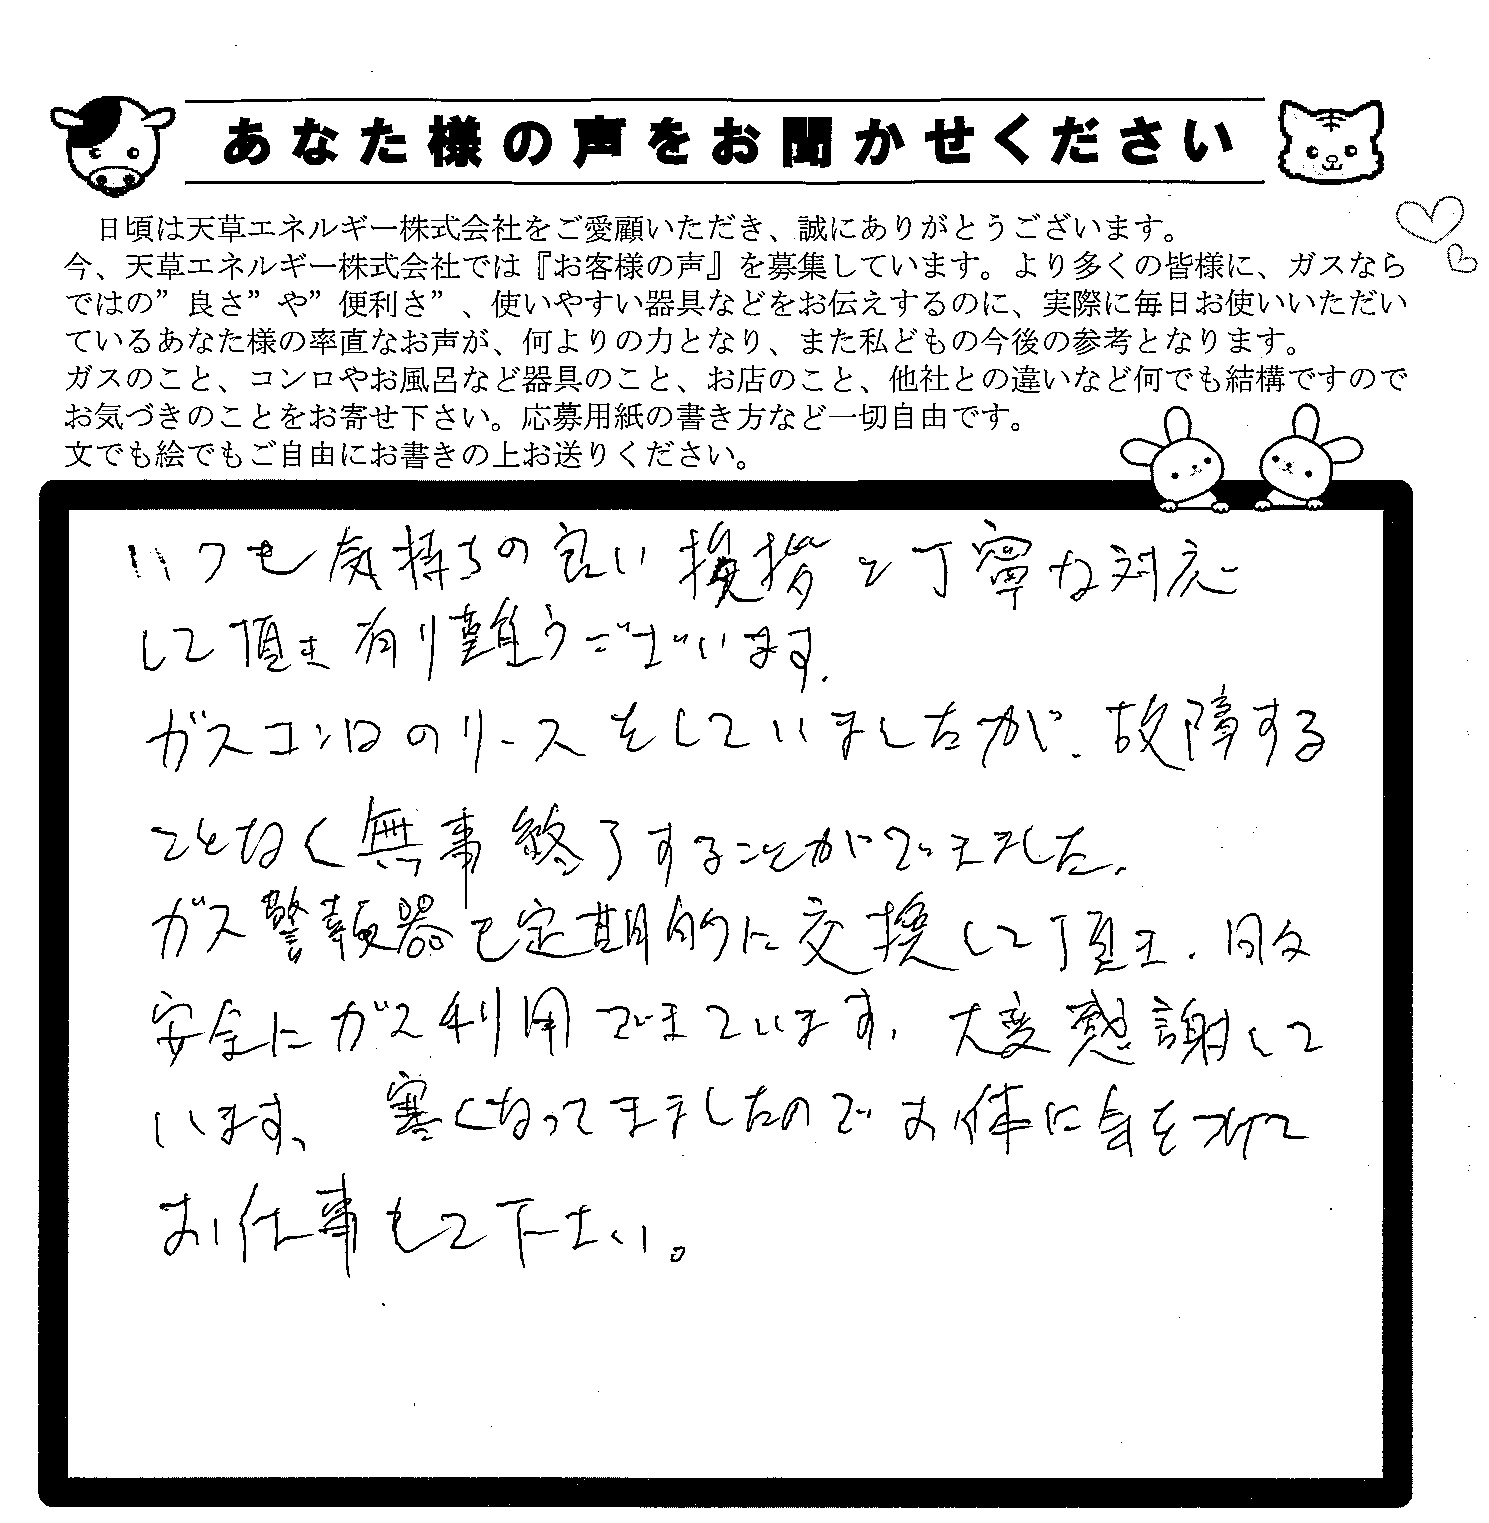 あなた様の声をお聞かせください
日頃は天草エネルギー株式会社をご愛顧いただき、誠にありがとうございます。
今、天草エネルギー株式会社では『お客様の声』を募集しています。より多くの皆様に、ガスなら
ではの”良さ”や”便利さ”、使いやすい器具などをお伝えするのに、実際に毎日お使いいただい
ているあなた様の率直なお声が、何よりの力となり、また私どもの今後の参考となります。
ガスのこと、コンロやお風呂など器具のこと、お店のこと、他社との違いなど何でも結構ですので
お気づきのことをお寄せ下さい。応募用紙の書き方など一切自由です。
文でも絵でもご自由にお書きの上お送りください。
いつも気持ちの良い挨拶と丁寧な対応
して頂き有り難うございます。
ガスコンロのリースをしていましたが、故障する
ことなく無事終了することができました。
ガス警報器も定期的に交換して頂き、日々
安全にガス利用できています。大変感謝して
います。寒くなってきましたのでお体に気をつけて
お仕事もして下さい。